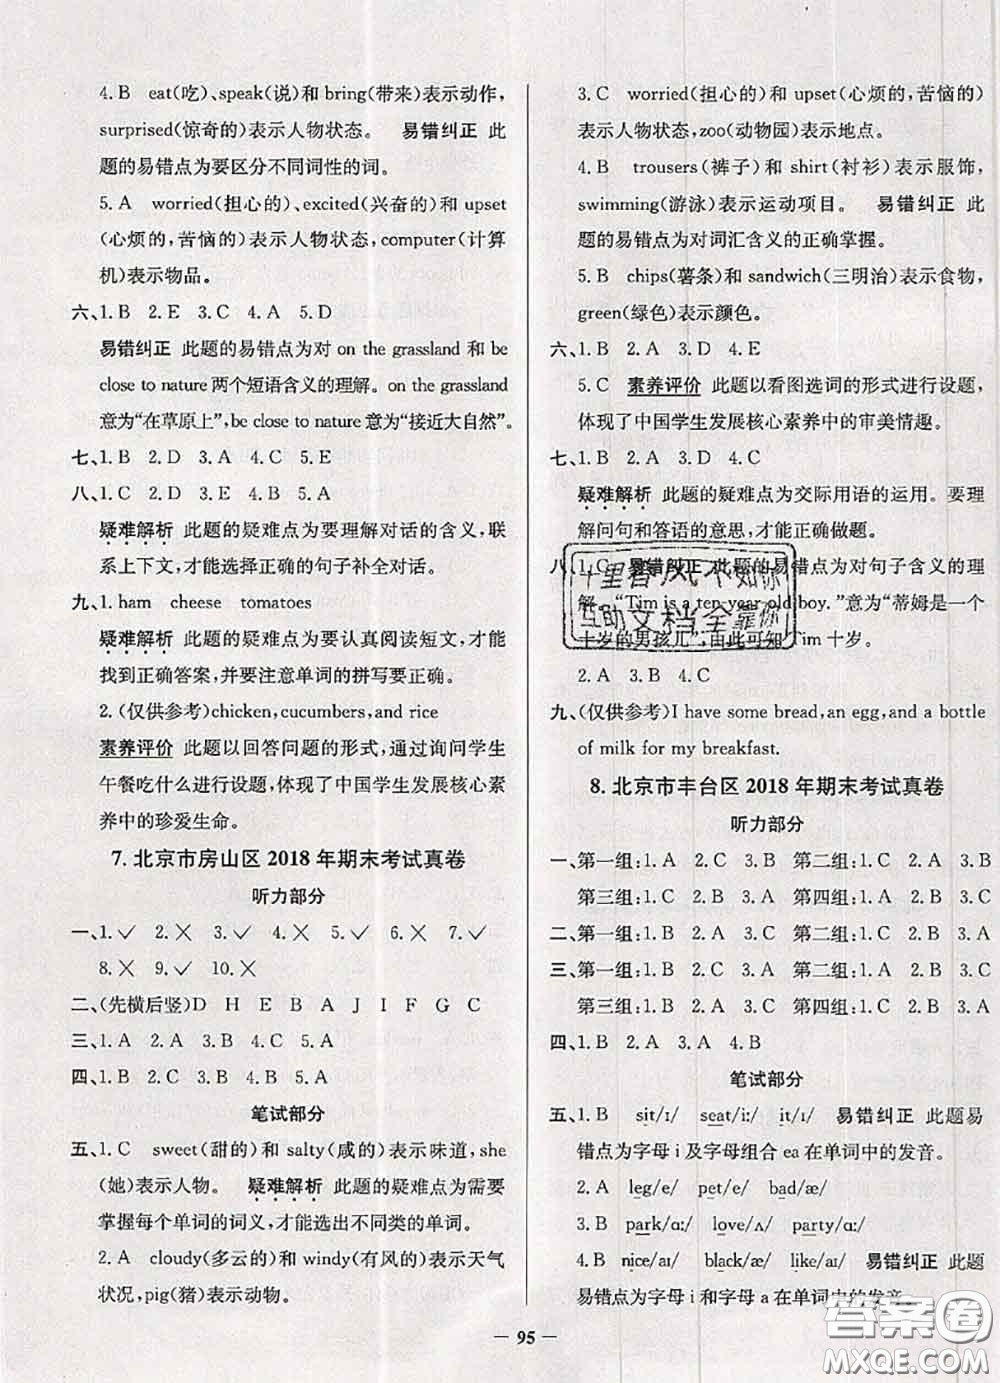 4.B eat(吃)、speak(说)和 bring(带来)表示动作,
surprised(惊奇的)表示人物状态。 易错纠正 此
题的易错点为要区分不同词性的词。
5.A worried(担心的)、excited(兴奋的)和 upset
(心烦的,苦恼的)表示人物状态,computer(计算
机)表示物品。
六、1.B 2.E 3.C 4.A 5.D
易错纠正 此题的易错点为对 on the grassland 和 be
close to nature 两个短语含义的理解。on the grassland
意为“在草原上”,be close to nature 意为“接近大自然”。
七、1.B 2.D 3.A 4.C 5.E
八、1.C 2.D 3.A 4.B 5.A
疑难解析 此题的疑难点为要理解对话的含义,联
系上下文,才能选择正确的句子补全对话。
九、1.ham cheese tomatoes
疑难解析 此题的疑难点为要认真阅读短文,才能
找到正确答案,并要注意单词的拼写要正确。
2.(仅供参考)chicken,cucumbers,and rice
素养评价 此题以回答问题的形式,通过询问学生
午餐吃什么进行设题,体现了中国学生发展核心素
养中的珍爱生命。
7.北京市房山区 2018 年期末考试真卷
听力部分
一、1.✓ 2.✕ 3.✓ 4.✕ 5.✓ 6.✕ 7.✓
8.✕ 9.✓ 10.✕
二、(先横后竖)D H E B A J I F G C
三、1.A 2.A 3.B 4.B 5.A
四、1.B 2.C 3.A 4.B 5.A
笔试部分
五、1.C sweet(甜的)和 salty(咸的)表示味道,she
(她)表示人物。 疑难解析 此题的疑难点为需要
掌握每个单词的词义,才能选出不同类的单词。
2.A cloudy(多云的)和 windy(有风的)表示天气
状况,pig(猪)表示动物。
3.C worried(担心的)和 upset(心烦的,苦恼的)
表示人物状态,zoo(动物园)表示地点。
4.B trousers(裤子)和 shirt(衬衫)表示服饰,
swimming(游泳)表示运动项目。 易错纠正 此
题的易错点为对词汇含义的正确掌握。
5.B chips(薯条)和 sandwich(三明治)表示食物,
green(绿色)表示颜色。
六、1.B 2.A 3.D 4.E
5.C 素养评价 此题以看图选词的形式进行设题,
体现了中国学生发展核心素养中的审美情趣。
七、1.B 2.A 3.D 4.C
疑难解析 此题的疑难点为交际用语的运用。要理
解问句和答语的意思,才能正确做题。
八、1.C 易错纠正 此题的易错点为对句子含义的理
解。“Tim is a ten-year-old boy.”意为“蒂姆是一个
十岁的男孩儿”,由此可知 Tim 十岁。
2.A 3.B 4.C
九、(仅供参考)I have some bread,an egg,and a bottle
of milk for my breakfast.
8.北京市丰台区 2018 年期末考试真卷
听力部分
一、第一组:1.A 2.C 3.B 第二组:1.C 2.A 3.B
第三组:1.C 2.B 3.A 第四组:1.C 2.A 3.B
二、第一组:1.B 2.C 3.A 第二组:1.C 2.B 3.A
三、第一组:1.B 2.C 3.A 第二组:1.A 2.C 3.B
第三组:1.B 2.A 3.C 第四组:1.C 2.B 3.A
四、1.B 2.A 3.A 4.B
笔试部分
五、1.B sit/ɪ/ seat/iː/ it/ɪ/ 易错纠正 此题易
错点为字母 i 及字母组合 ea 在单词中的发音。
2.A leg/e/ pet/e/ bad/æ/
3.B park/ɑː/ love/ʌ/ party/ɑː/
4.B nice/aɪ/ black/æ/ like/aɪ/ 易错纠正 此题
易错点为字母 i 和字母 a 在单词中的发音。
十里春风不如你
互助文档全靠你
— 95 —
答案卷
MXQE.COM